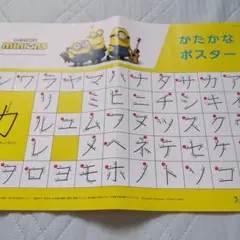 minions
かたかな
ポスター
ン ワ ラ ヤ マ ハ ナ タ サ カ ア
リ ミ ヒ ニ チ シ キ イ
カ
ル ユ ム フ ヌ ツ ス ク ウ
レ メ ヘ ネ テ セ ケ エ
ヲ ロ ヨ モ ホ ノ ト ソ コ オ